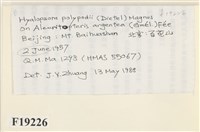 Hyalopsora polypodii (Dietel) Magnus
on Aleuritopteris argentea (Gmél.) Fée
Beijing: Mt. Baihuashan 北京:百花山
2 June, 1957
Q. M. Ma, 1293 (HMAS 55067)
Det. J. Y. Zhuang 13 May 1988
F19226